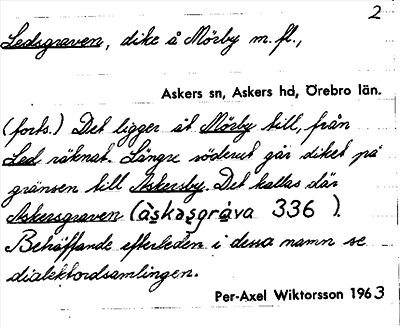 2
Ledsgraven, dike å Mörby m.fl.,
Askers sn, Askers hd, Örebro län.
(forts.) Det ligger åt Mörby till, från
Led räknat. Längre söderut går diket på
gränsen till Askersby. Det kallas där
Askersgraven (àskəsgràva 336 ).
Beträffande efterleden i dessa namn se
dialektordsamlingen.
Per-Axel Wiktorsson 1963